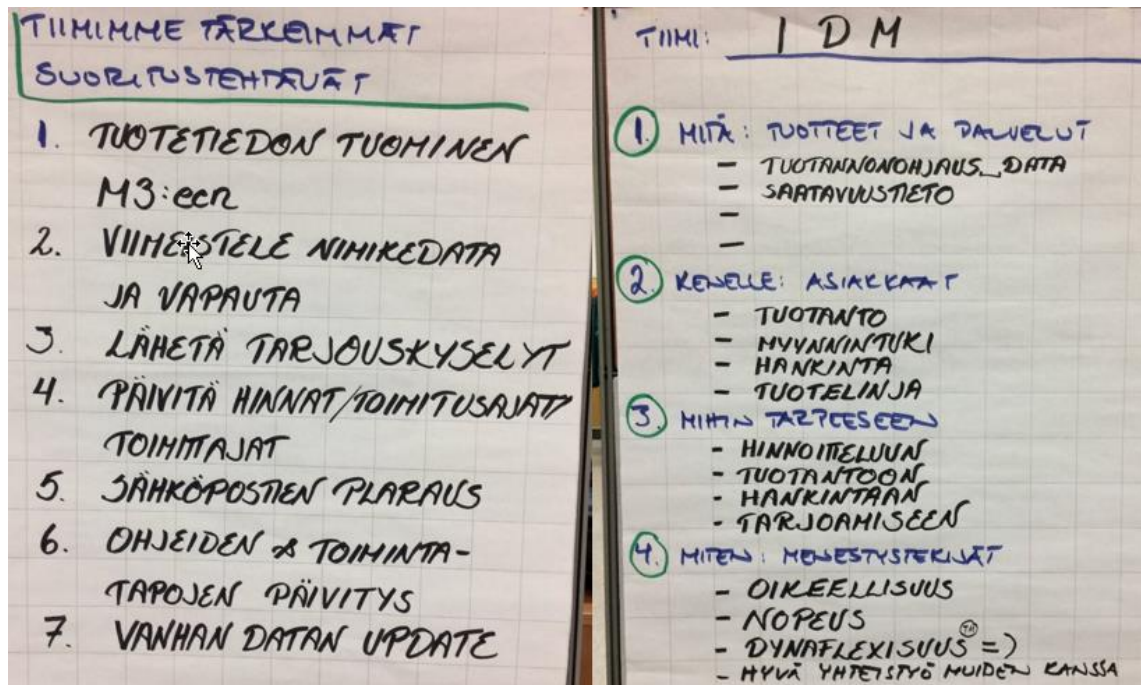 TIIMIMME TÄRKEIMMÄT
SUORITUSTEHTÄVÄT
1. TUOTETIEDON TUOMINEN
M3:een
2. VIIMEISTELE NIMIKEDATA
JA VAPAUTA
3. LÄHETÄ TARJOUSKYSELYT
4. PÄIVITÄ HINNAT/TOIMITUSAJAT/
TOIMITTAJAT
5. SÄHKÖPOSTIEN PLARAUS
6. OHJEIDEN & TOIMINTA-
TAPOJEN PÄIVITYS
7. VANHAN DATAN UPDATE
TIIMI: IDM
1. MITÄ: TUOTTEET JA PALVELUT
- TUOTANNONOHJAUS_DATA
- SAATAVUUSTIETO
-
-
2. KENELLE: ASIAKKAAT
- TUOTANTO
- MYYNNINTUKI
- HANKINTA
- TUOTELINJA
3. MIHIN TARPEESEEN
- HINNOITTELUUN
- TUOTANTOON
- HANKINTAAN
- TARJOAMISEEN
4. MITEN: MENESTYSTEKIJÄT
- OIKEELLISUUS
- NOPEUS
- DYNAFLEXISUUS TM =)
- HYVÄ YHTEISTYÖ MUIDEN KANSSA